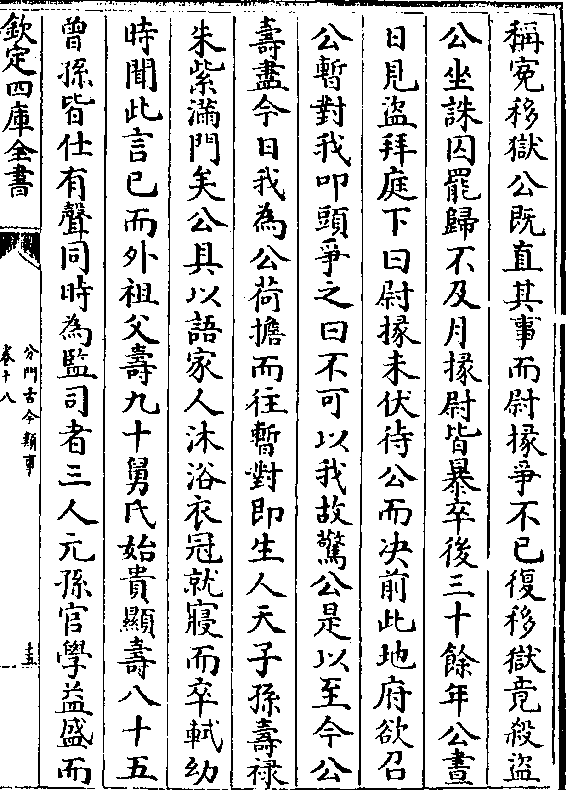 稱寃移獄公既直其事而尉掾爭不已復移獄竟殺盜
公坐誅囚罷歸不及月掾尉皆暴卒後三十餘年公晝
日見盜拜庭下曰尉掾未伏待公而决前此地府欲召
公暫對我叩頭爭之曰不可以我故驚公是以至今公
壽盡今日我為公荷擔而往暫對即生人天子孫壽祿
朱紫滿門矣公具以語家人沐浴衣冠就寢而卒軾幼
時聞此言已而外祖父壽九十舅氏始貴顯壽八十五
曾孫皆仕有聲同時為監司者三人元孫官學益盛而
欽定四庫全書
分門古今類事
卷十八
十五